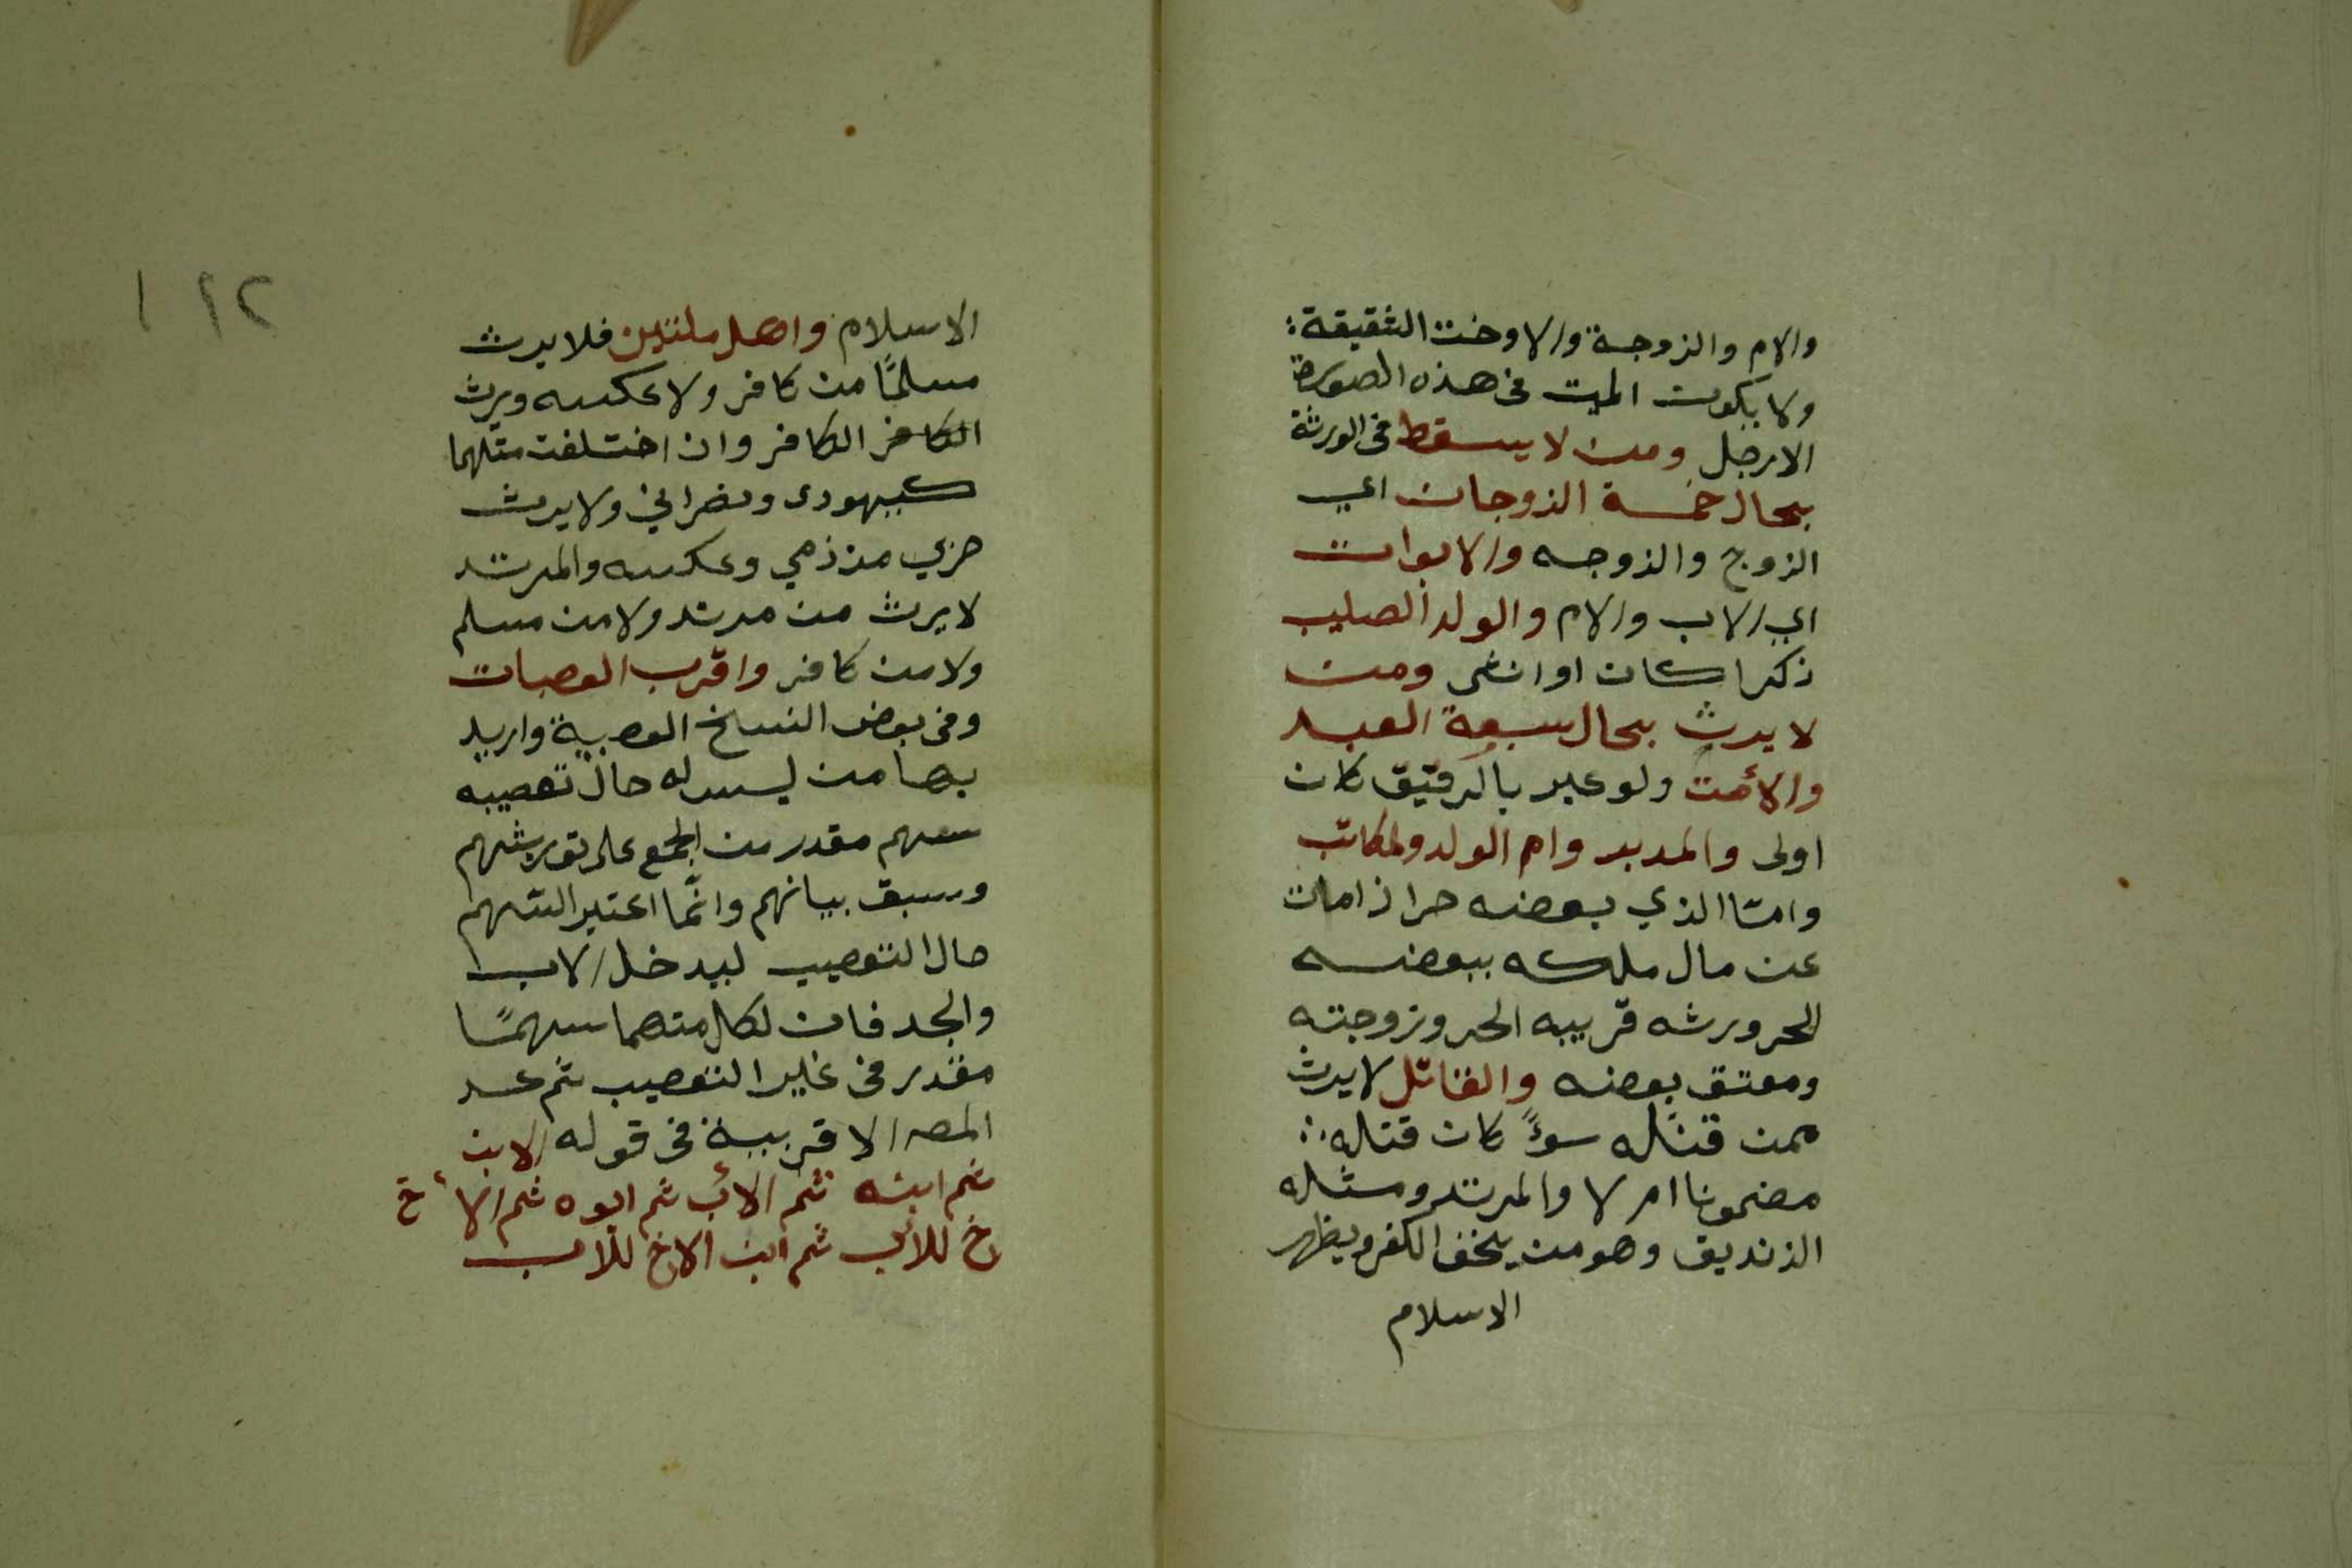 والام والزوجة والاوخت الشقيقة:
ولا يكون الميت فى هذه الصورة
الارجل ومن لا يسقط فى الورثة
بحال خمسة الزوجان اي
الزوج والزوجه والابوان
اي الاب والام والولد الصليب
ذكرا كان او انثى ومن
لا يرث بحال سبعة العبد
والأمت ولو عبر بالرقيق كان
اولى والمدبر وام الولد ولمكاتب
وامّا الذي بعضه حر اذا مات
عن مال ملكه ببعضه
الحر ورثه قريبه الحر وزوجته
ومعتق بعضه والقاتل لا يرث
ممن قتله سوءً كان قتله
مضمونا ام لا والمرتد ومثله
الزنديق وهو من يخف الكفر ويظهر
الاسلام
١ ٩٢
الاسلام واهل ملتين فلا يرث
مسلمًا من كافر ولا عكسه ويرث
الكافر الكافر وان اختلفت متلهما
كيهودى ونصراني ولا يرث
حربي من ذمي وعكسه والمرتد
لا يرث من مرتد ولا من مسلم
ولا من كافر واقرب العصبات
وفى بعض النسخ العصبية واريد
بها من ليس له حال تعصيبه
سهم مقدر من المجمع على توريثهم
وسبق بيانهم وانّما اعتبر السهم
حال التعصيب ليدخل الاب
والجد فان لكل منهما سهمًا
مقدر فى غير التعصيب ثم عد
المصـ الاقربية فى قوله الابن
ثم ابنه ثم الأب ثم ابوه ثم الأخ
رخ للأب ثم ابن الاخ للاب